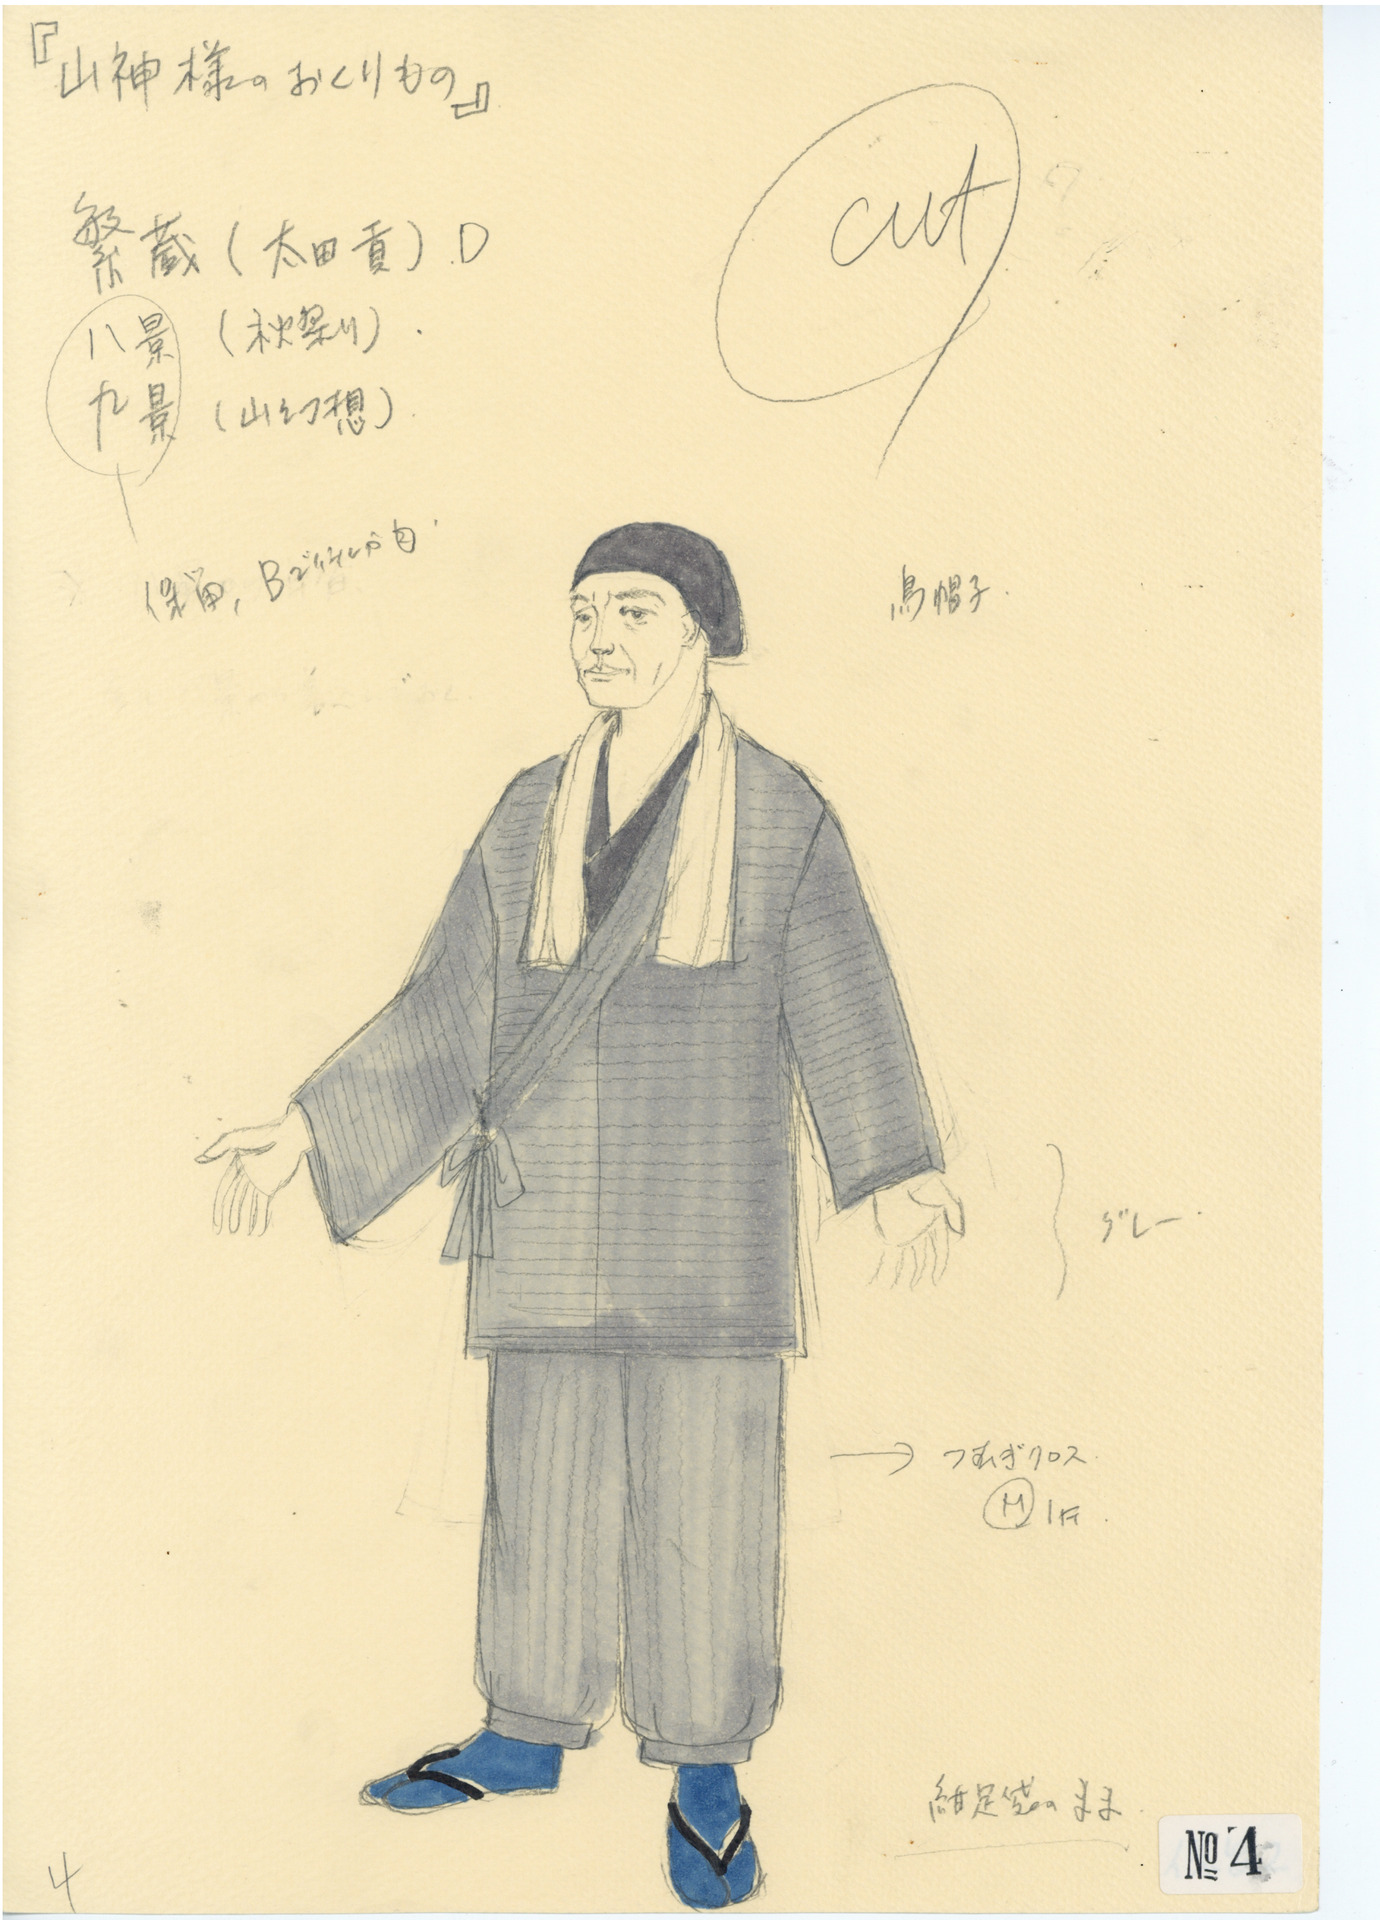 『山神様のおくりもの』
cut
繁蔵(太田貢).D
八景 (秋祭り).
九景 (山幻想).
保留, Bで
烏帽子.
グレー.
→ つむぎクロス.
Ⓜ 1斤.
紺足袋のまま.
4
№ 4